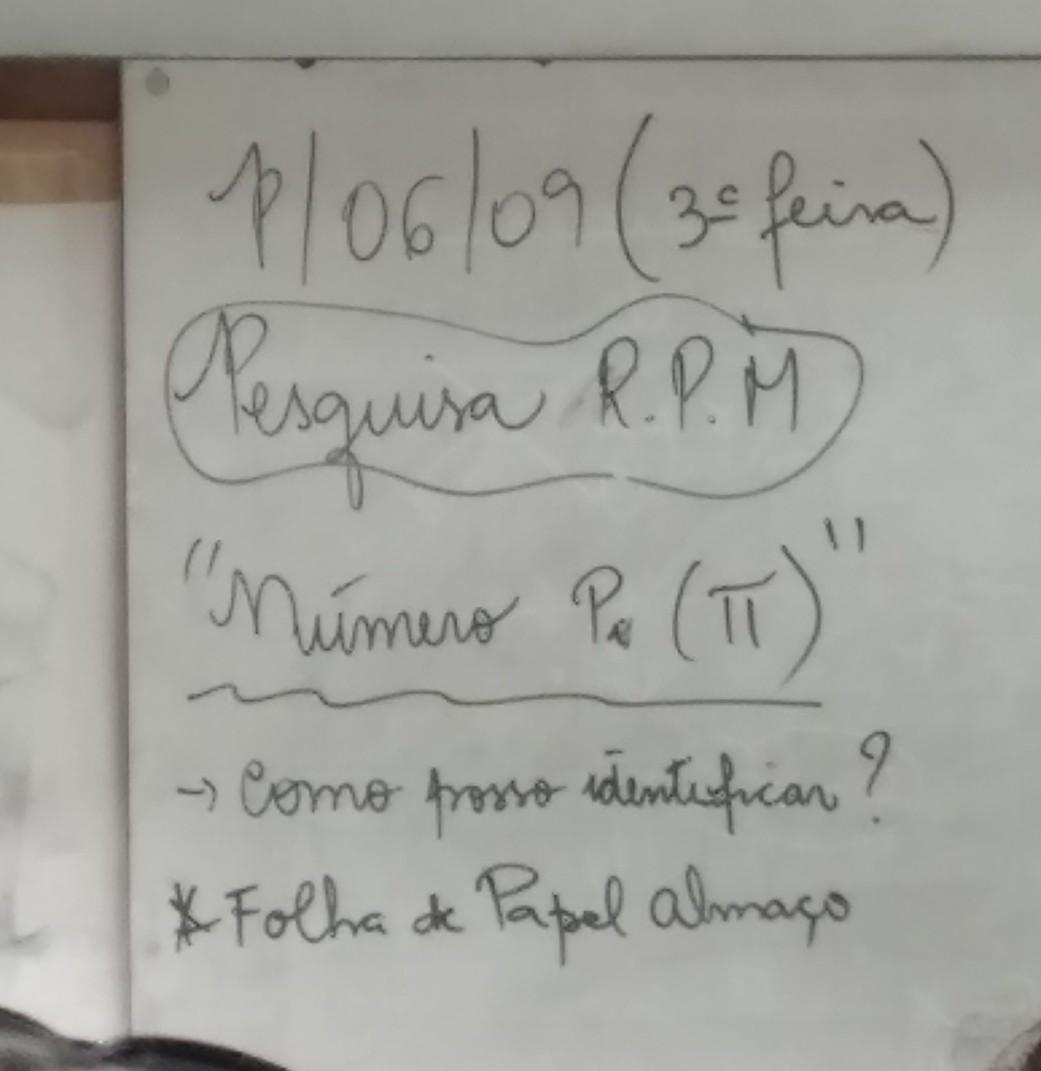 P/ 06/09 (3ª feira)
Pesquisa R.P.M
"Número Pi (π)"
→ Como posso identificar?
* Folha de Papel almaço